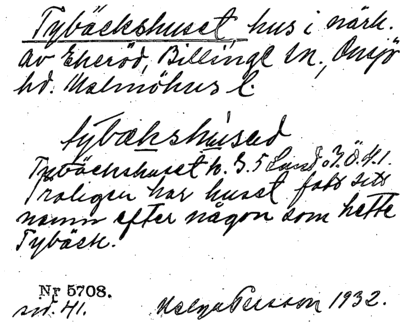 Tybäckshuset hus i närh.
av Ekeröd, Billinge sn., Onsjö
hd. Malmöhus l.
tybækshused
Tybäckshuset h. G. 5 Lund. J.Ö.41.
Troligen har huset fått sitt
namn efter någon som hette
Tybäck.
Nr 5708.
sid. 41. Helge Persson 1932.